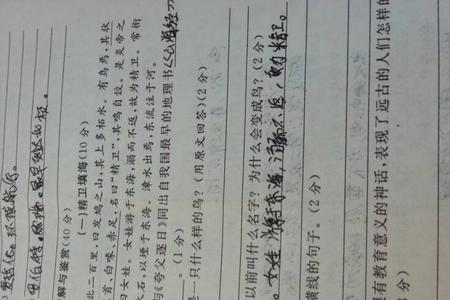 解与鉴赏(40分)
(一)精卫填海(10分)
北二百里,曰发鸠之山,其上多柘木。有鸟焉,其状
首,白喙,赤足,名曰"精卫",其鸣自詨。是炎帝之
曰女娃。女娃游于东海,溺而不返,故为精卫。常衔
木石,以堙于东海。漳水出焉,东流注于河。
与《夸父逐日》同出自我国最早的地理书《山海经》
。(1分)
一只什么样的鸟?(用原文回答)(2分)
以前叫什么名字?为什么会变成鸟?(2分)
女娃 游于东海,溺而不返,
横线的句子。(2分)
有教育意义的神话,表现了远古的人们怎样的
分)